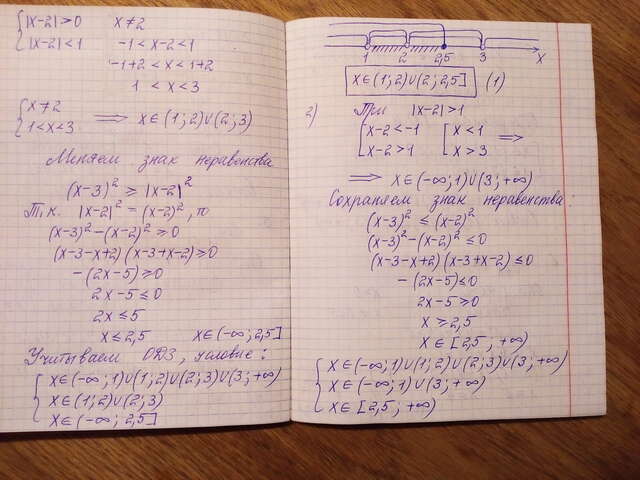 {|x-2|>0 x≠2
{|x-2|<1 -1<x-2<1
-1+2<x<1+2
1<x<3
{x≠2
{1<x<3 ⟹ x∈(1;2)∪(2;3)
Меняем знак неравенства
(x-3)² ≥ |x-2|²
Т.к. |x-2|² = (x-2)², то
(x-3)²-(x-2)² ≥0
(x-3-x+2)(x-3+x-2)≥0
-(2x-5)≥0
2x-5≤0
2x≤5
x≤2,5 x∈(-∞;2,5]
Учитываем ОДЗ, условие:
{x∈(-∞;1)∪(1;2)∪(2;3)∪(3;+∞)
{x∈(1;2)∪(2;3)
{x∈(-∞;2,5]
1 2 2,5 3 x
x∈(1;2)∪(2;2,5] (1)
2) При |x-2|>1
[x-2<-1 [x<1
[x-2>1 [x>3 ⟹
⟹ x∈(-∞;1)∪(3;+∞)
Сохраняем знак неравенства:
(x-3)² ≤ (x-2)²
(x-3)²-(x-2)² ≤0
(x-3-x+2)(x-3+x-2)≤0
-(2x-5)≤0
2x-5≥0
x≥2,5
x∈[2,5;+∞)
{x∈(-∞;1)∪(1;2)∪(2;3)∪(3;+∞)
{x∈(-∞;1)∪(3;+∞)
{x∈[2,5;+∞)